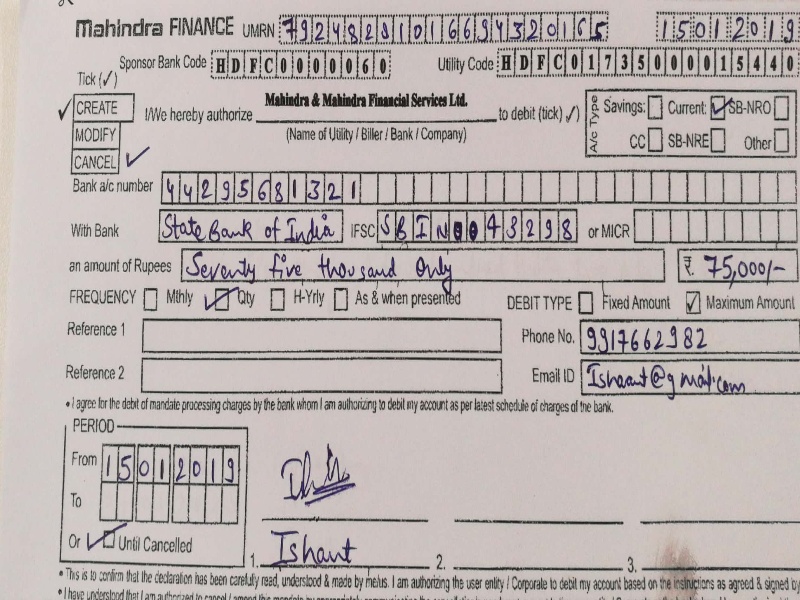 Mahindra FINANCE UMRN 79248281016694320165 15012019
Sponsor Bank Code HDFC0000060 Utility Code HDFC01735000015440
Tick (✓)
✓ CREATE I/We hereby authorize Mahindra & Mahindra Financial Services Ltd. to debit (tick ✓) A/c Type Savings: Current: ✓ SB-NRO
MODIFY (Name of Utility / Biller / Bank / Company) CC SB-NRE Other
CANCEL ✓
Bank a/c number 44295681321
With Bank State Bank of India IFSC SBIN0043298 or MICR
an amount of Rupees Seventy five thousand Only ₹. 75,000/-
FREQUENCY Mthly ✓ Qty H-Yrly As & when presented DEBIT TYPE Fixed Amount ✓ Maximum Amount
Reference 1 Phone No. 9917662982
Reference 2 Email ID Ishaant@gmail.com
• I agree for the debit of mandate processing charges by the bank whom I am authorizing to debit my account as per latest schedule of charges of the bank.
PERIOD
From 15012019
To
Or ✓ Until Cancelled
1. Ishant 2. 3.
• This is to confirm that the declaration has been carefully read, understood & made by me/us. I am authorizing the user entity / Corporate to debit my account based on the instructions as agreed & signed by
• I have understood that I am authorized to cancel / amend this mandate by appropriately communicating the